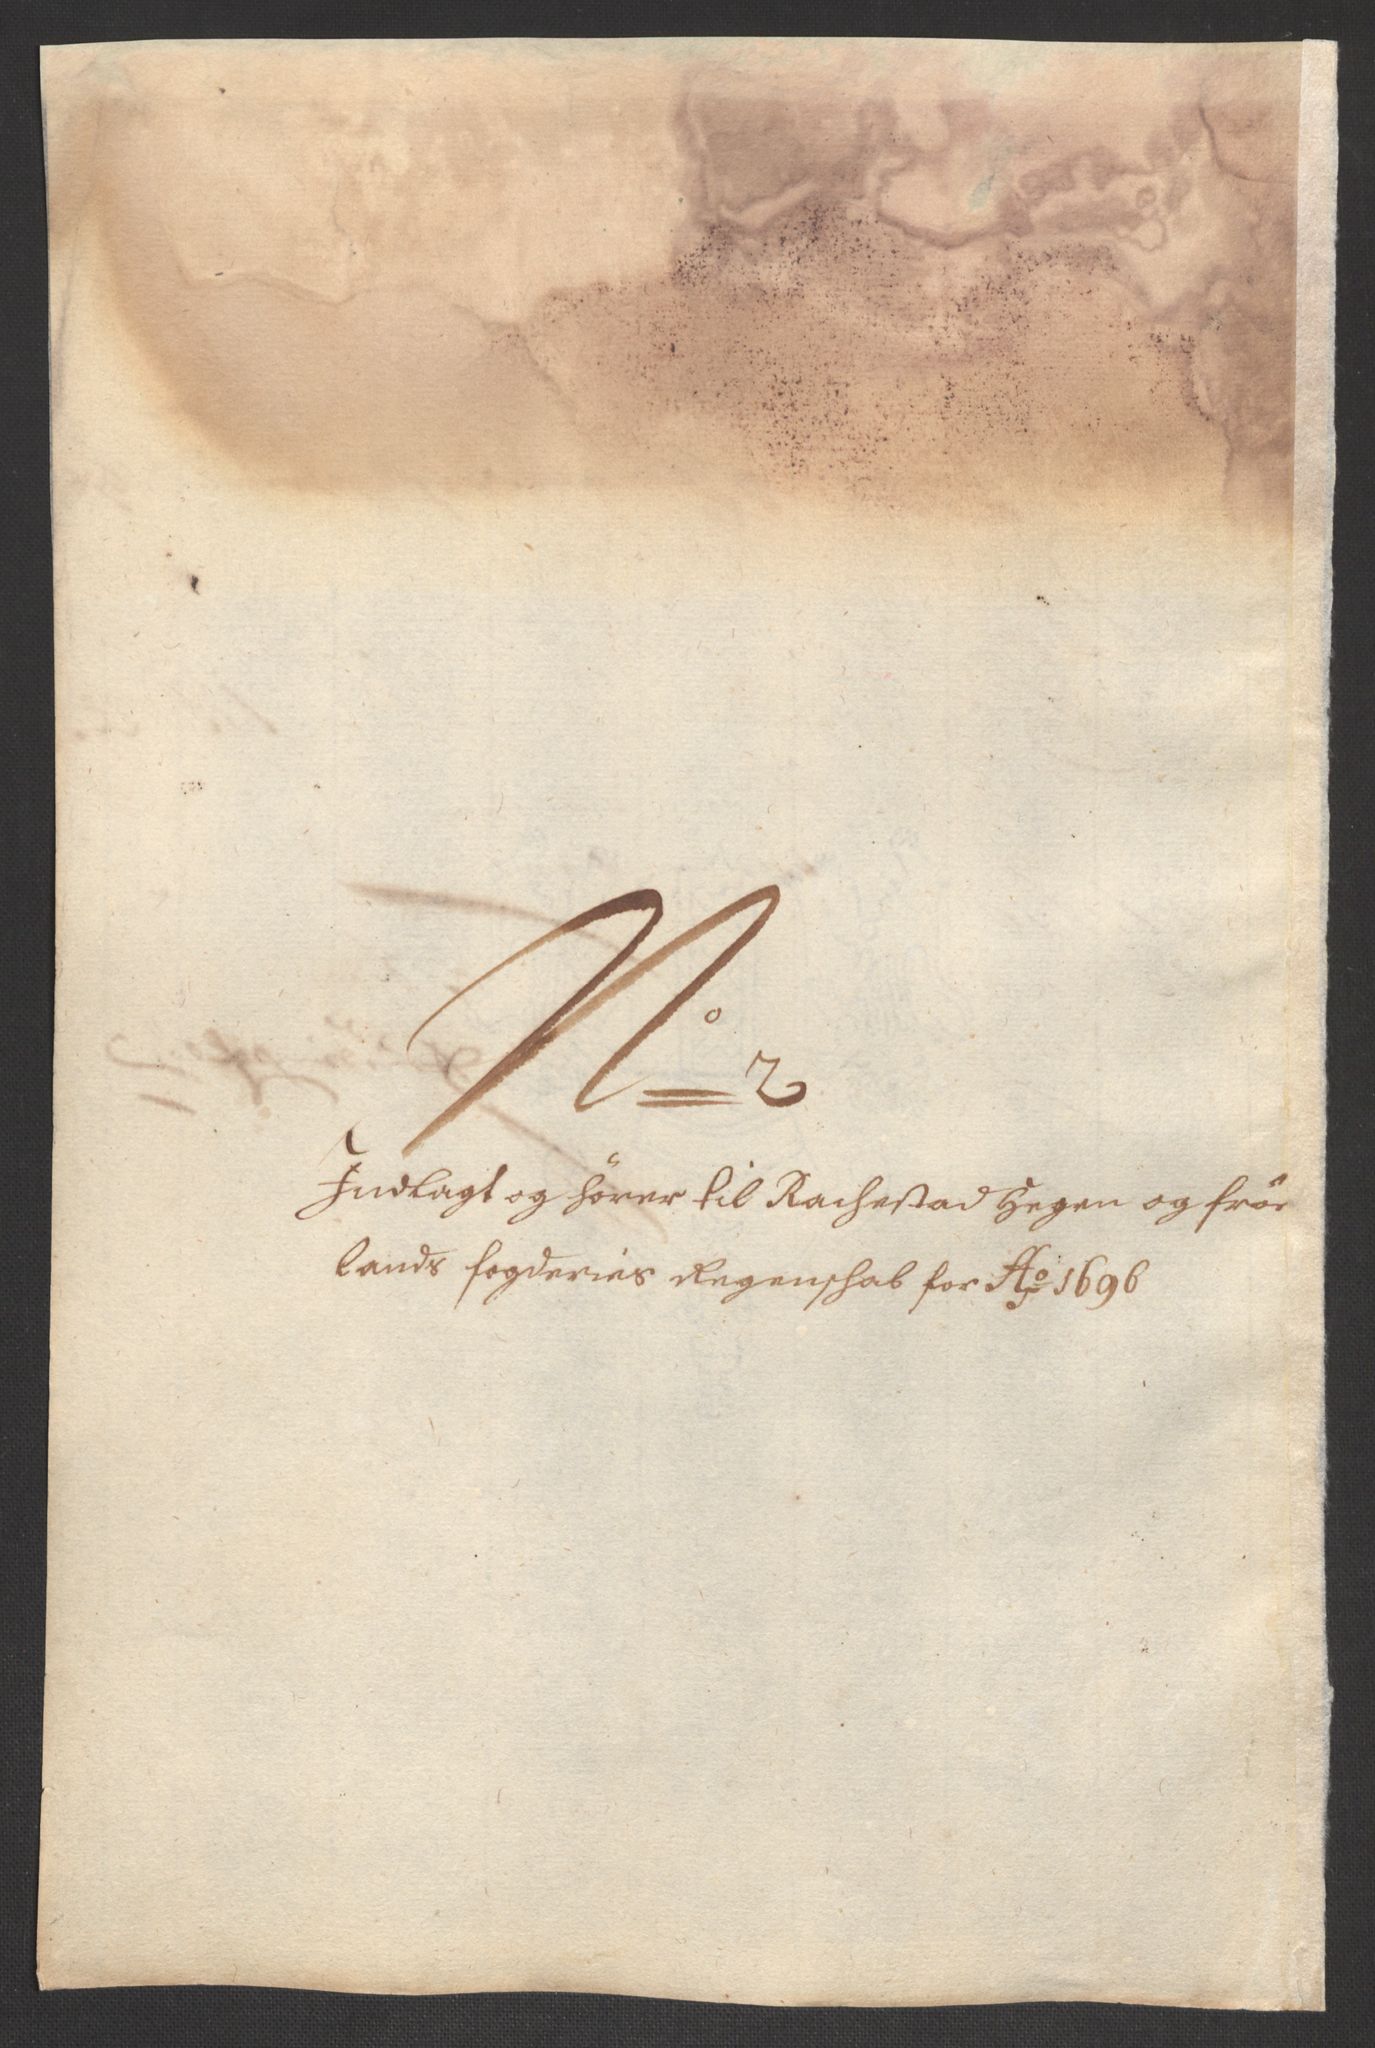 No 2
Indlagt og hörer til Rachestad Hegen og frö
lands fogderies Regenschab for Ao 1696